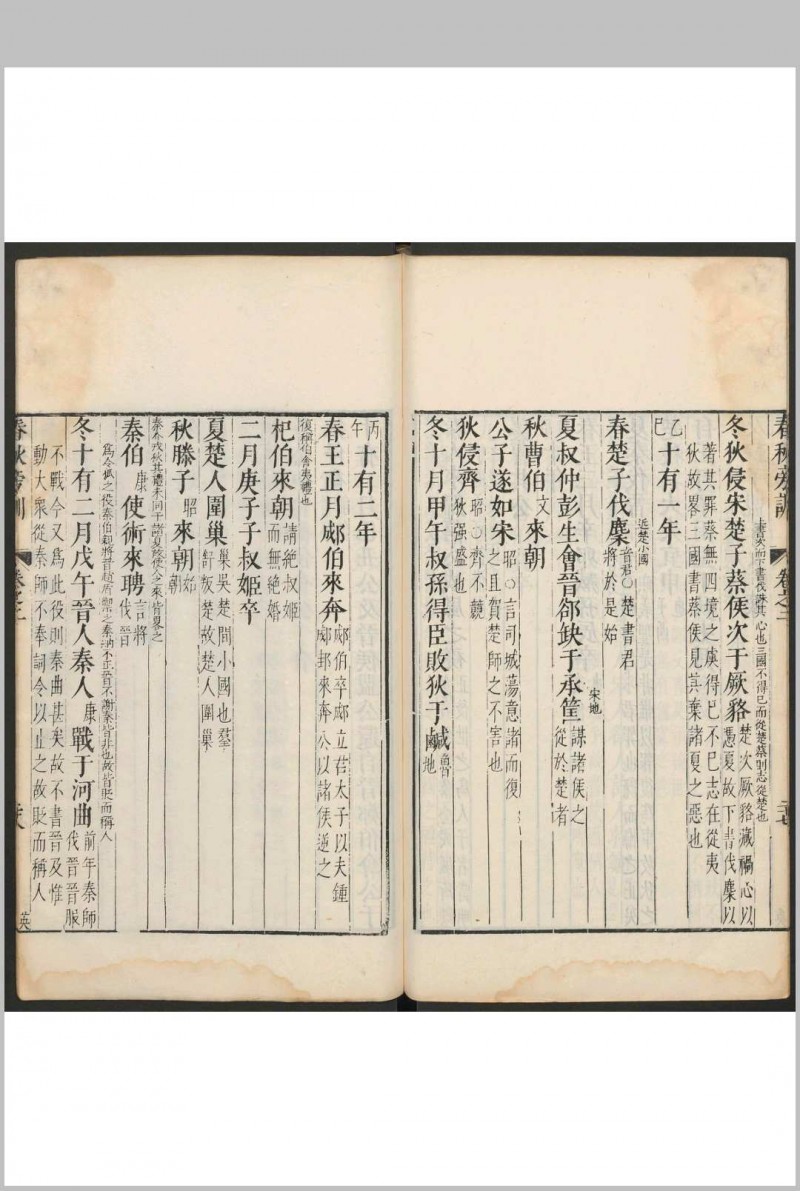 春秋旁訓
卷之二
上書次而下書伐誅其心也三國不得已而從楚蔡則志從楚也
冬狄侵宋楚子蔡侯次于厥貉楚次厥貉藏禍心以
憑夏故下書伐麇以
著其罪蔡無四境之虞得已不已志在從夷
狄故畧三國書蔡侯見其棄諸夏之惡也
乙巳十有一年
近楚小國
春楚子伐麇皆君〇楚書君
將於是始
宋地
夏叔仲彭生會晉郤缺于承筐謀諸侯之
從於楚者
秋曹伯文來朝
公子遂如宋昭〇言司城蕩意諸而復
之且賀楚師之不害也
狄侵齊昭〇齊不競
狄强盛也
冬十月甲午叔孫得臣敗狄于鹹魯
地
丙午十有二年
春王正月郕伯來奔郕伯卒郕立君太子以夫鍾
郕邽來奔公以諸侯逆之
復稱伯舍夷禮也
杞伯來朝請絶叔姬
而無絶婚
二月庚子子叔姬卒
夏楚人圍巢巢吳楚間小國也羣
舒叛楚故楚人圍巢
秋滕子昭來朝始
朝
秦今戎狄其禮未同于諸夏故使人之來皆畧之
秦伯康使術來聘言將
伐晉
冬十有二月戊午晉人秦人康戰于河曲前年秦師
伐晉晉服
不戰今又爲此役則秦曲甚矣故不書晉及惟
動大衆從秦師不奉詞令以止之故貶而稱人
春秋旁訓
卷之二
英